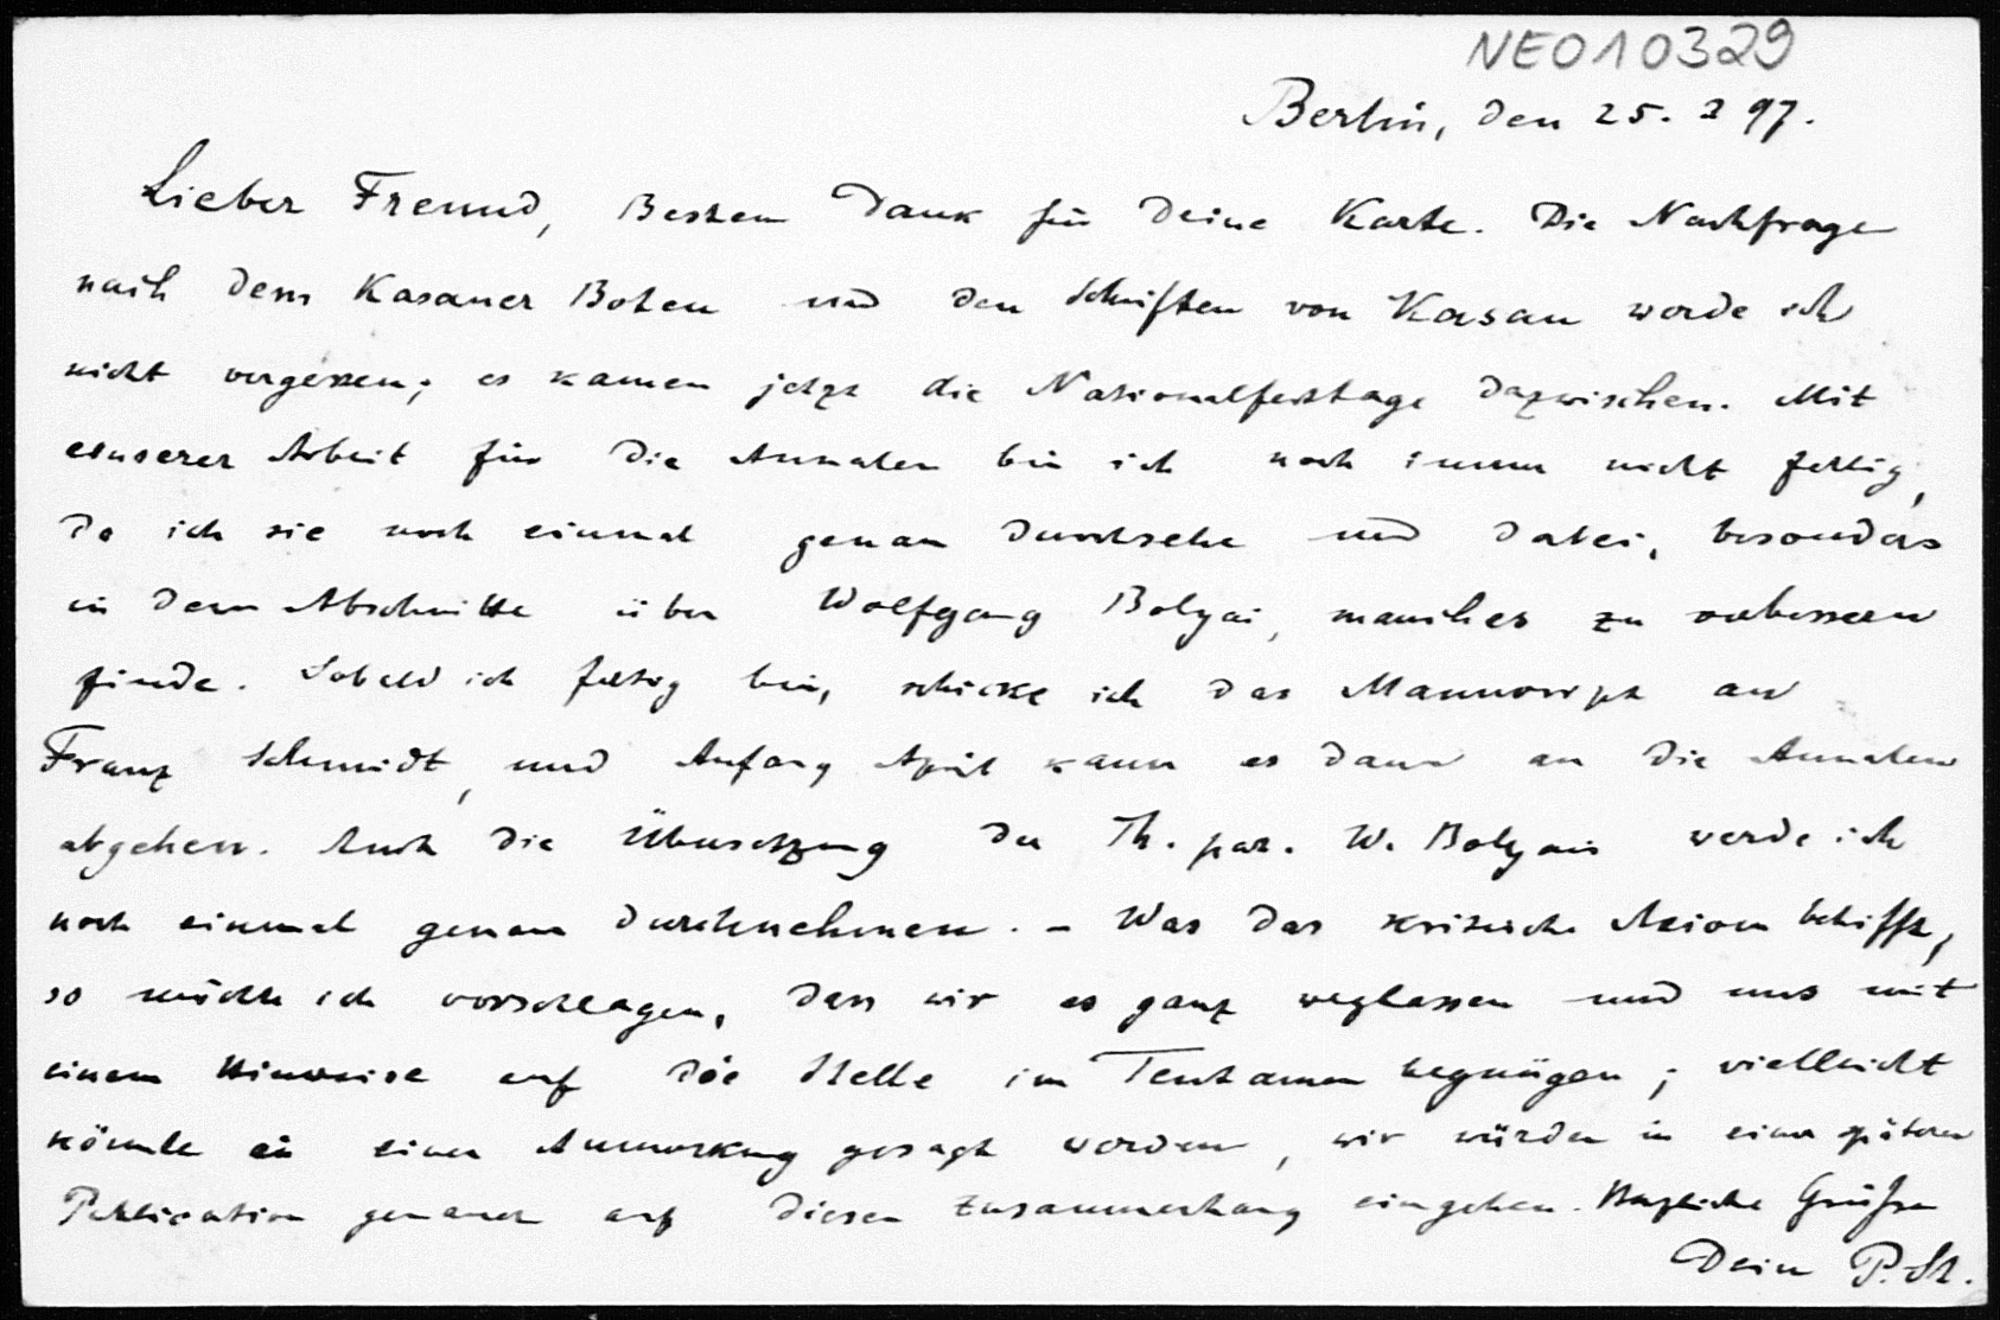 NEO10329
Berlin, den 25. 3 97.
Lieber Freund, Besten Dank für Deine Karte. Die Nachfrage
nach dem Kasaner Boten und den Schriften von Kasan werde ich
nicht vergessen; es kamen jetzt die Nationalfesttage dazwischen. Mit
unserer Arbeit für die Annalen bin ich noch immer nicht fertig,
da ich sie noch einmal genau durchsehe und dabei, besonders
in dem Abschnitte über Wolfgang Bolyai, manches zu verbessern
finde. Sobald ich fertig bin, schicke ich das Manuscript an
Franz Schmidt, und Anfang April kann es dann an die Annalen
abgehen. Auch die Übersetzung der Th. par. W. Bolyais werde ich
noch einmal genau durchnehmen. - Was das kritische Axiom betrifft,
so möchte ich vorschlagen, dass wir es ganz weglassen und uns mit
einem Hinweise auf die Stelle im Tentamen begnügen; vielleicht
könnte in einer Anmerkung gesagt werden, wir würden in einer späteren
Publication genauer auf diesen Zusammenhang eingehen. Herzliche Grüße
Dein P. St.